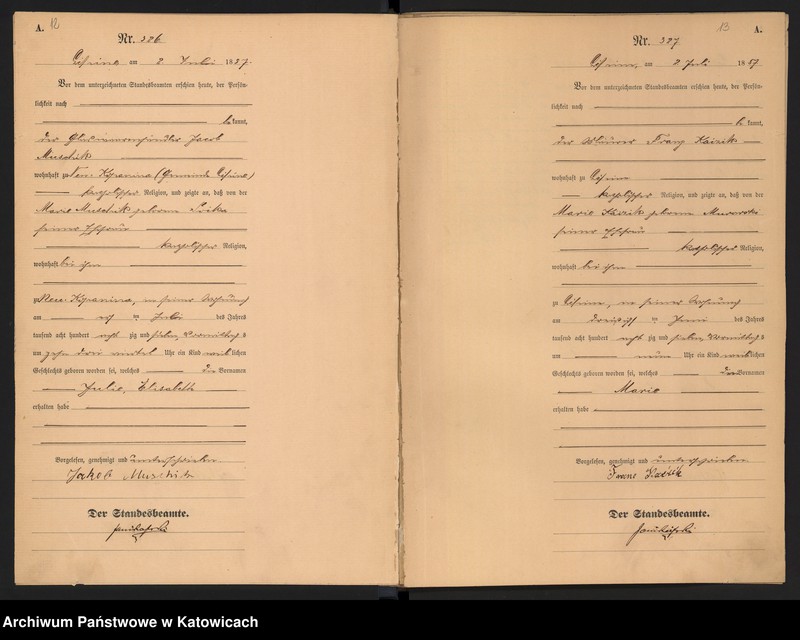 A. 12
Nr. 386.
am 2 Juli 1887.
Vor dem unterzeichneten Standesbeamten erschien heute, der Persön-
lichkeit nach
kannt,
der Jacob
Muschik
wohnhaft zu Neu-Kopanina (Gemeinde
katholischer Religion, und zeigte an, daß von der
Marie Muschik geborene
seiner Ehefrau
katholischer Religion,
wohnhaft bei ihm
zu Neu-Kopanina, in seiner Wohnung
am des Jahres
tausend acht hundert acht zig und sieben, Vormittags
um zehn drei viertel Uhr ein Kind weiblichen
Geschlechts geboren worden sei, welches die Vornamen
Julie, Elisabeth
erhalten habe
Vorgelesen, genehmigt und unterschrieben
Jakob Muschik
Der Standesbeamte.
13 A.
Nr. 387.
am 2 Juli 1887
Vor dem unterzeichneten Standesbeamten erschien heute, der Persön-
lichkeit nach
kannt,
der Franz
wohnhaft zu
katholischer Religion, und zeigte an, daß von der
Marie geborene
seiner Ehefrau
katholischer Religion,
wohnhaft bei ihm
zu in seiner Wohnung
am dreißigsten Juni des Jahres
tausend acht hundert acht zig und sieben, Vormittags
um neun Uhr ein Kind weiblichen
Geschlechts geboren worden sei, welches den Vornamen
Marie
erhalten habe
Vorgelesen, genehmigt und unterschrieben
Franz
Der Standesbeamte.
Archiwum Państwowe w Katowicach